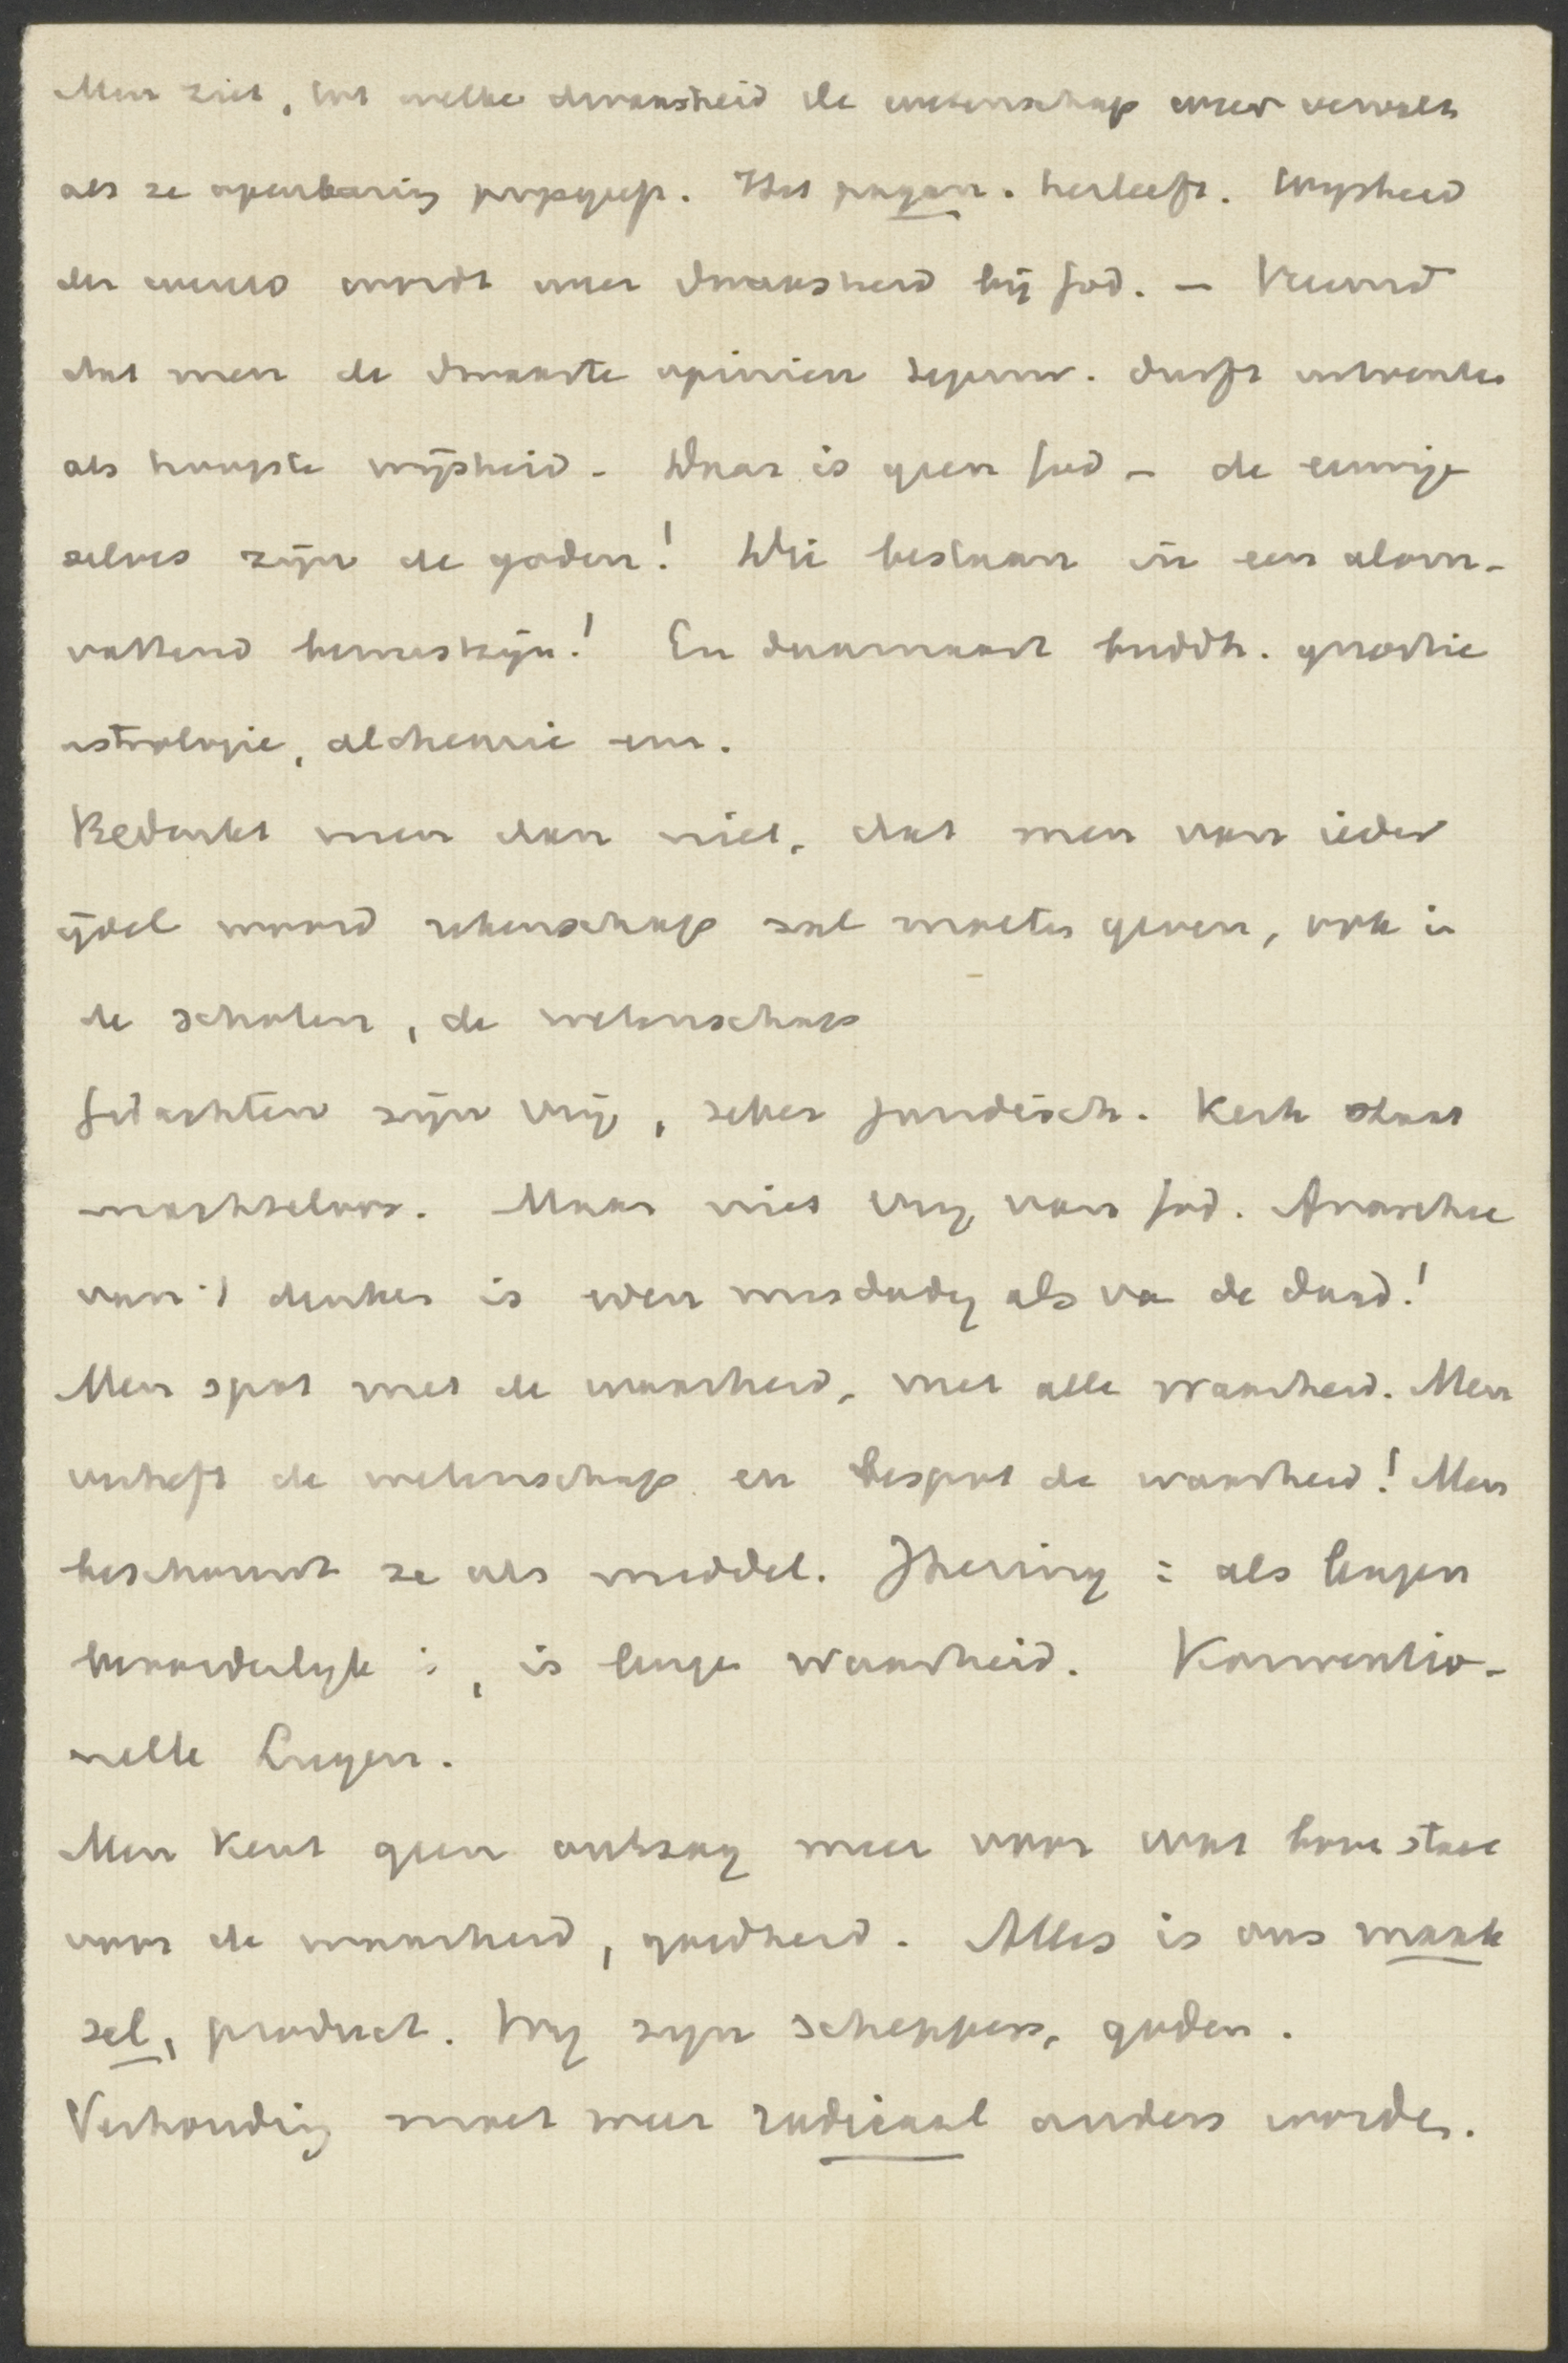 Men ziet, tot welke dwaasheid de wetenschap weer vervalt
als ze openbaring prijsgeeft. Het pagan. herleeft. Wijsheid
der wereld wordt weer dwaasheid bij God. — Vreemd
dat men de dwaaste opinien tegenw. durft uitventen
als hoogste wijsheid – Daar is geen God – de eeuwige
zelves zijn de goden! Die bestaan in een alom-
vattend bewustzijn! En daarnaast buddh. gnostic
astrologie, alchemie enz.
Bedenkt men dan niet, dat men van ieder
ijdel woord rekenschap zal moeten geven, ook in
de scholen, de wetenschap
Gedachten zijn vrij, zeker juridisch. Kerk staat
machteloos. Maar niet vrij van God. Anarchie
van 't denken is even misdadig als va de daad!
Men spot met de waarheid, met alle waarheid. Men
verheft de wetenschap en bespot de waarheid! Men
beschouwt ze als middel. Jhering : als leugen
bevorderlijk is, is leugen waarheid. Konventio-
nelle Lugen.
Men kent geen ontzag meer voor wat boven staat
voor de waarheid, goedheid. Alles is ons maak
sel, product. Wij zijn scheppers, goden.
Verhouding moet weer radicaal anders worden.